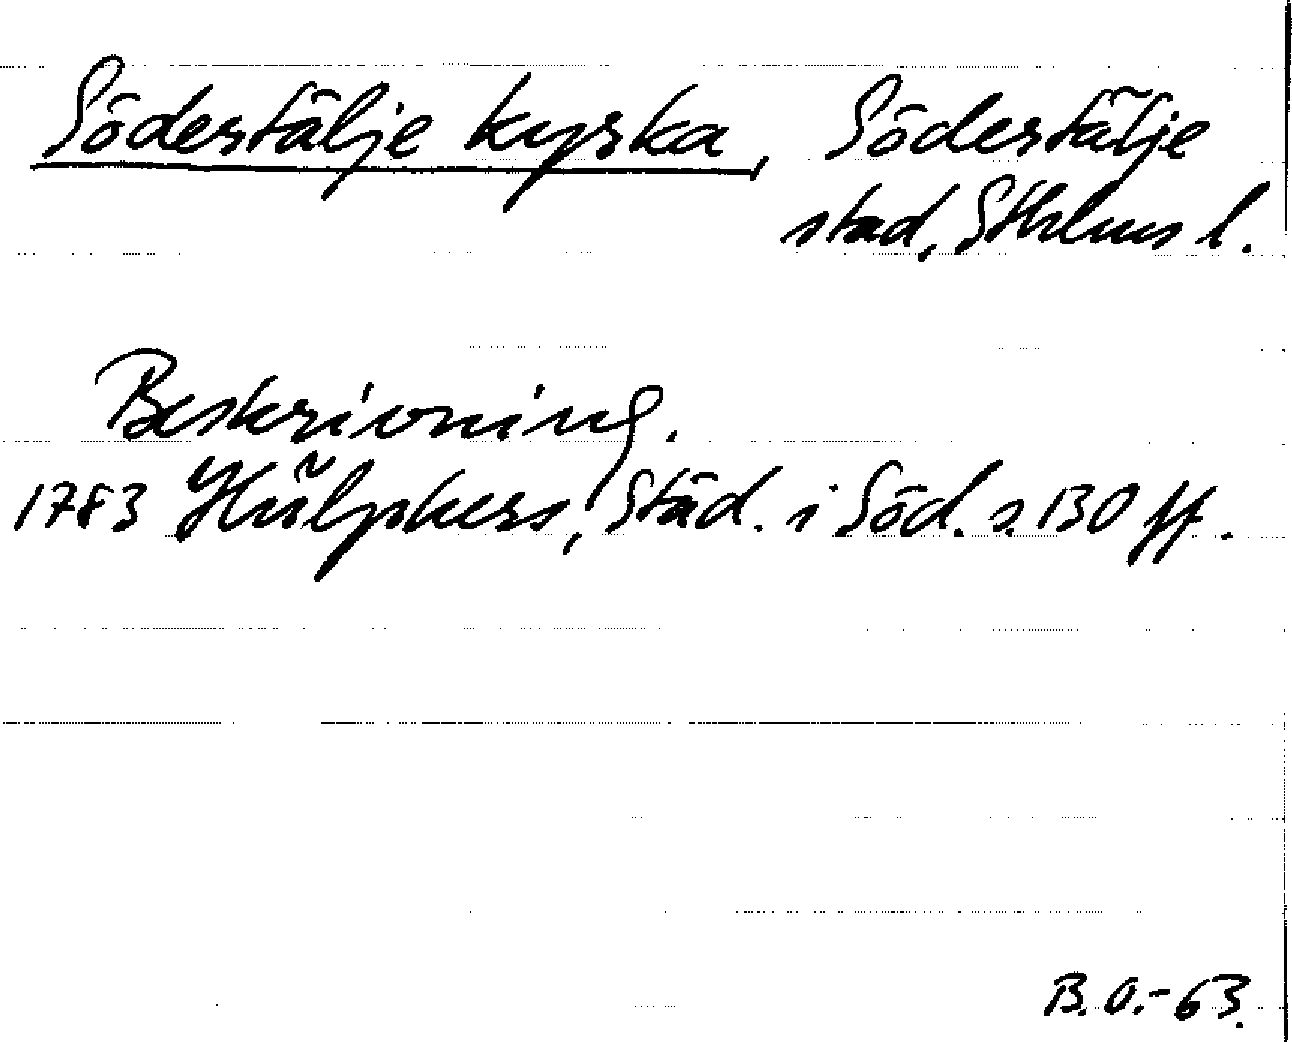 Södertälje kyrka, Södertälje
stad, Sthlms l.
Beskrivning.
1783 Hülphers, Städ. i Söd. s. 130 ff.
B.O.-63.